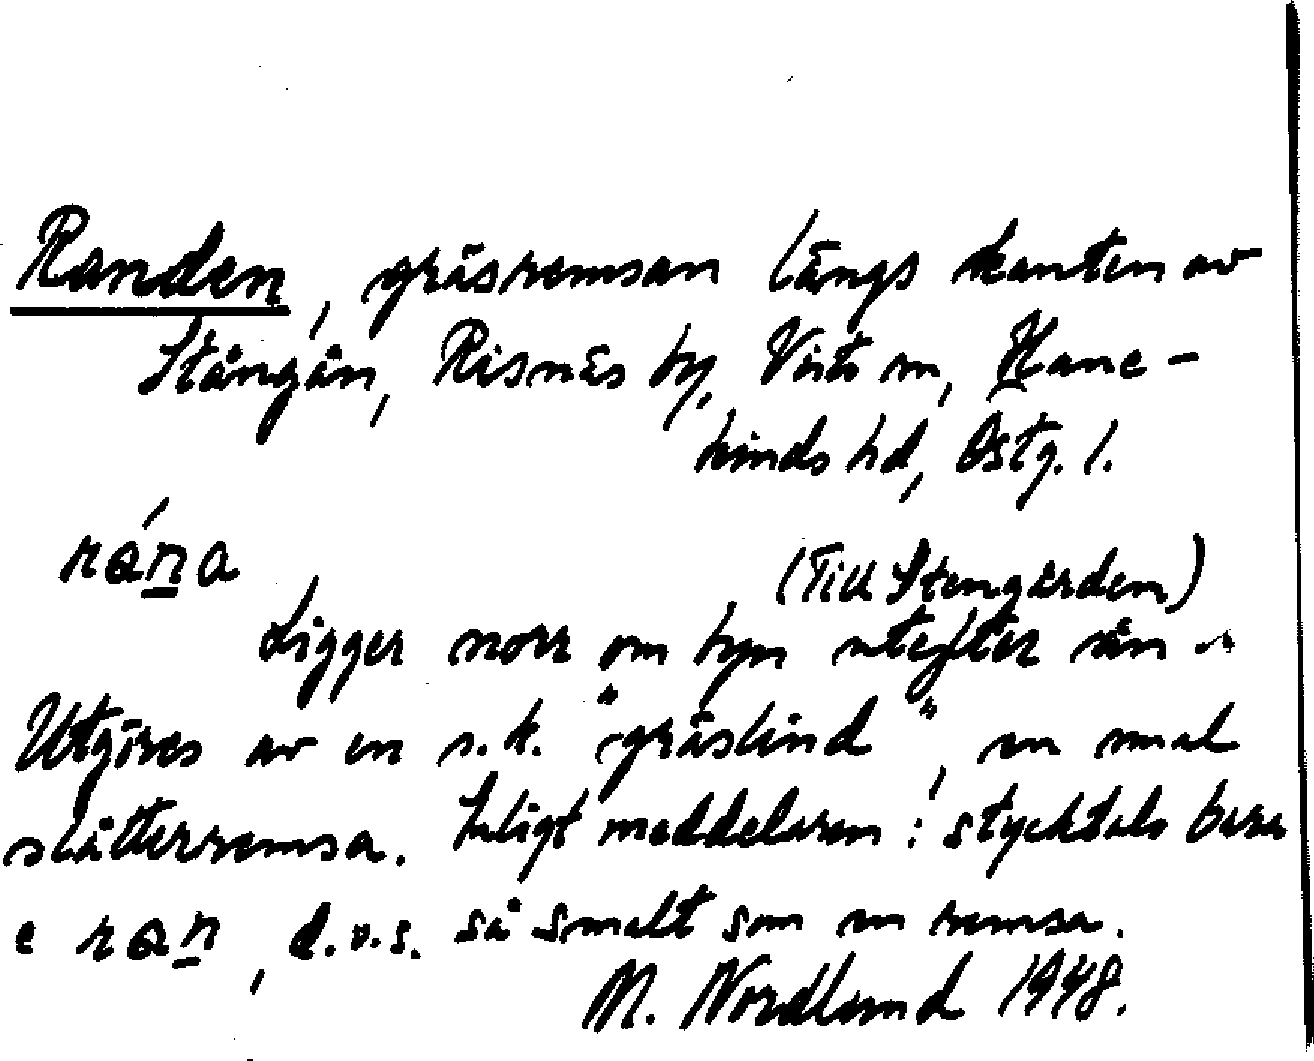 Randen, gräsremsan längs kanten av
Stångån, Risnäs by, Vists sn, Hane-
kinds hd, Östg. l.
rána
(Till Stengården)
Ligger norr om byn utefter ån
Utgöres av en s.k. "gräslind", en smal
slåtterremsa. Enligt meddelaren: stycktals bara
e ran, d.v.s. så smalt som en remsa.
M. Nordlund 1948.